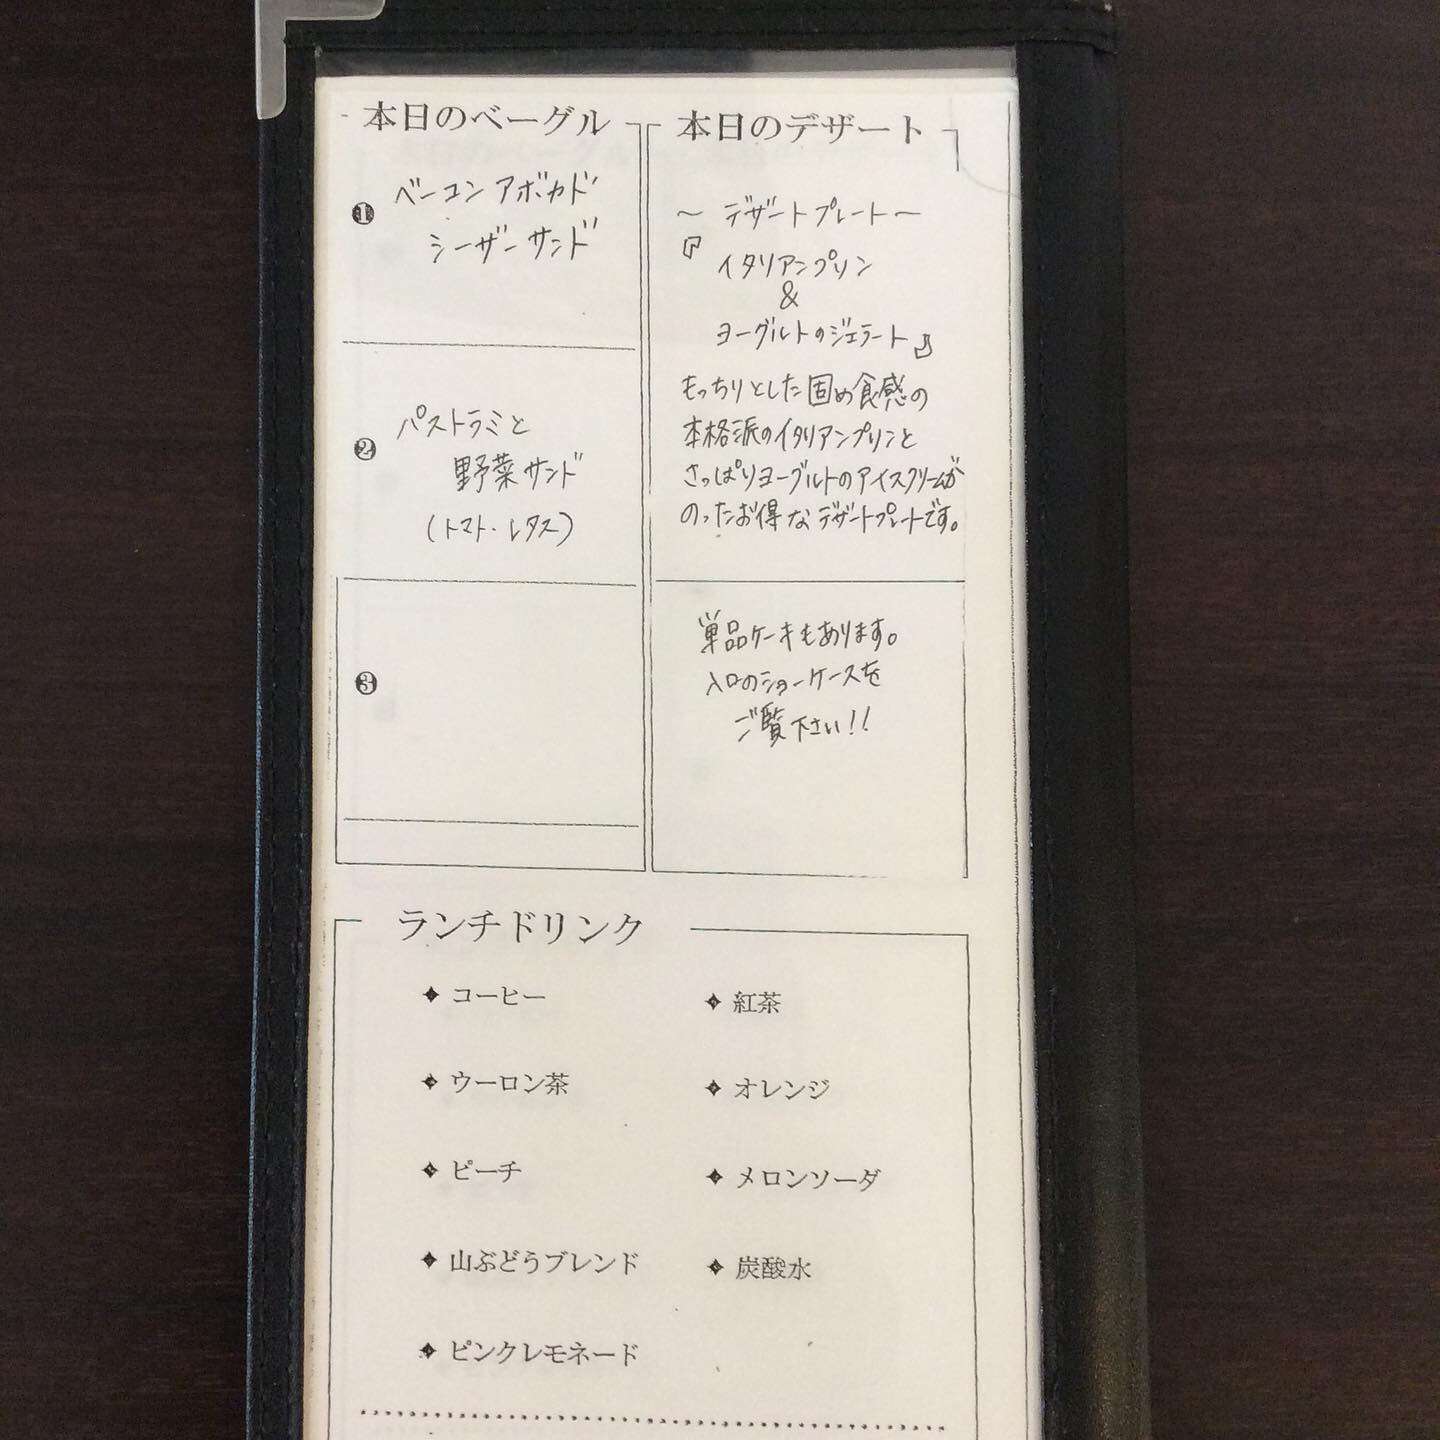 本日のベーグル
❶ ベーコン アボカド
シーザーサンド
❷ パストラミと
野菜サンド
(トマト・レタス)
❸
本日のデザート
～ デザートプレート ～
『イタリアンプリン
&
ヨーグルトのジェラート』
もっちりとした固め食感の
本格派のイタリアンプリンと
さっぱりヨーグルトのアイスクリームが
のったお得なデザートプレートです。
単品ケーキもあります。
入口のショーケースを
ご覧下さい!!
ランチドリンク
コーヒー
紅茶
ウーロン茶
オレンジ
ピーチ
メロンソーダ
山ぶどうブレンド
炭酸水
ピンクレモネード